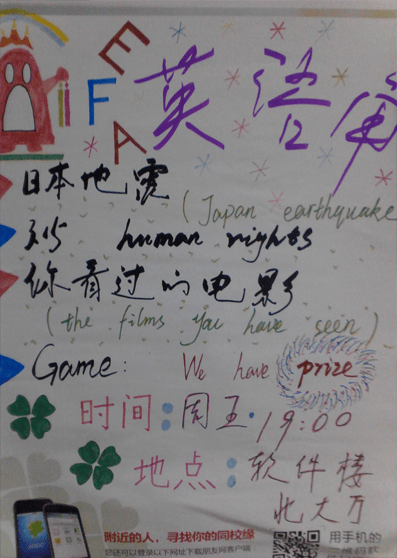 EFA
英语角
日本地震
(Japan earthquake
human rights
你看过的电影
(the films you have seen)
Game: We have prize
时间:周五·19:00
地点:软件楼
北大厅
附近的人，寻找你的同校缘
您还可以登录以下网址下载朋友网客户端
用手机的